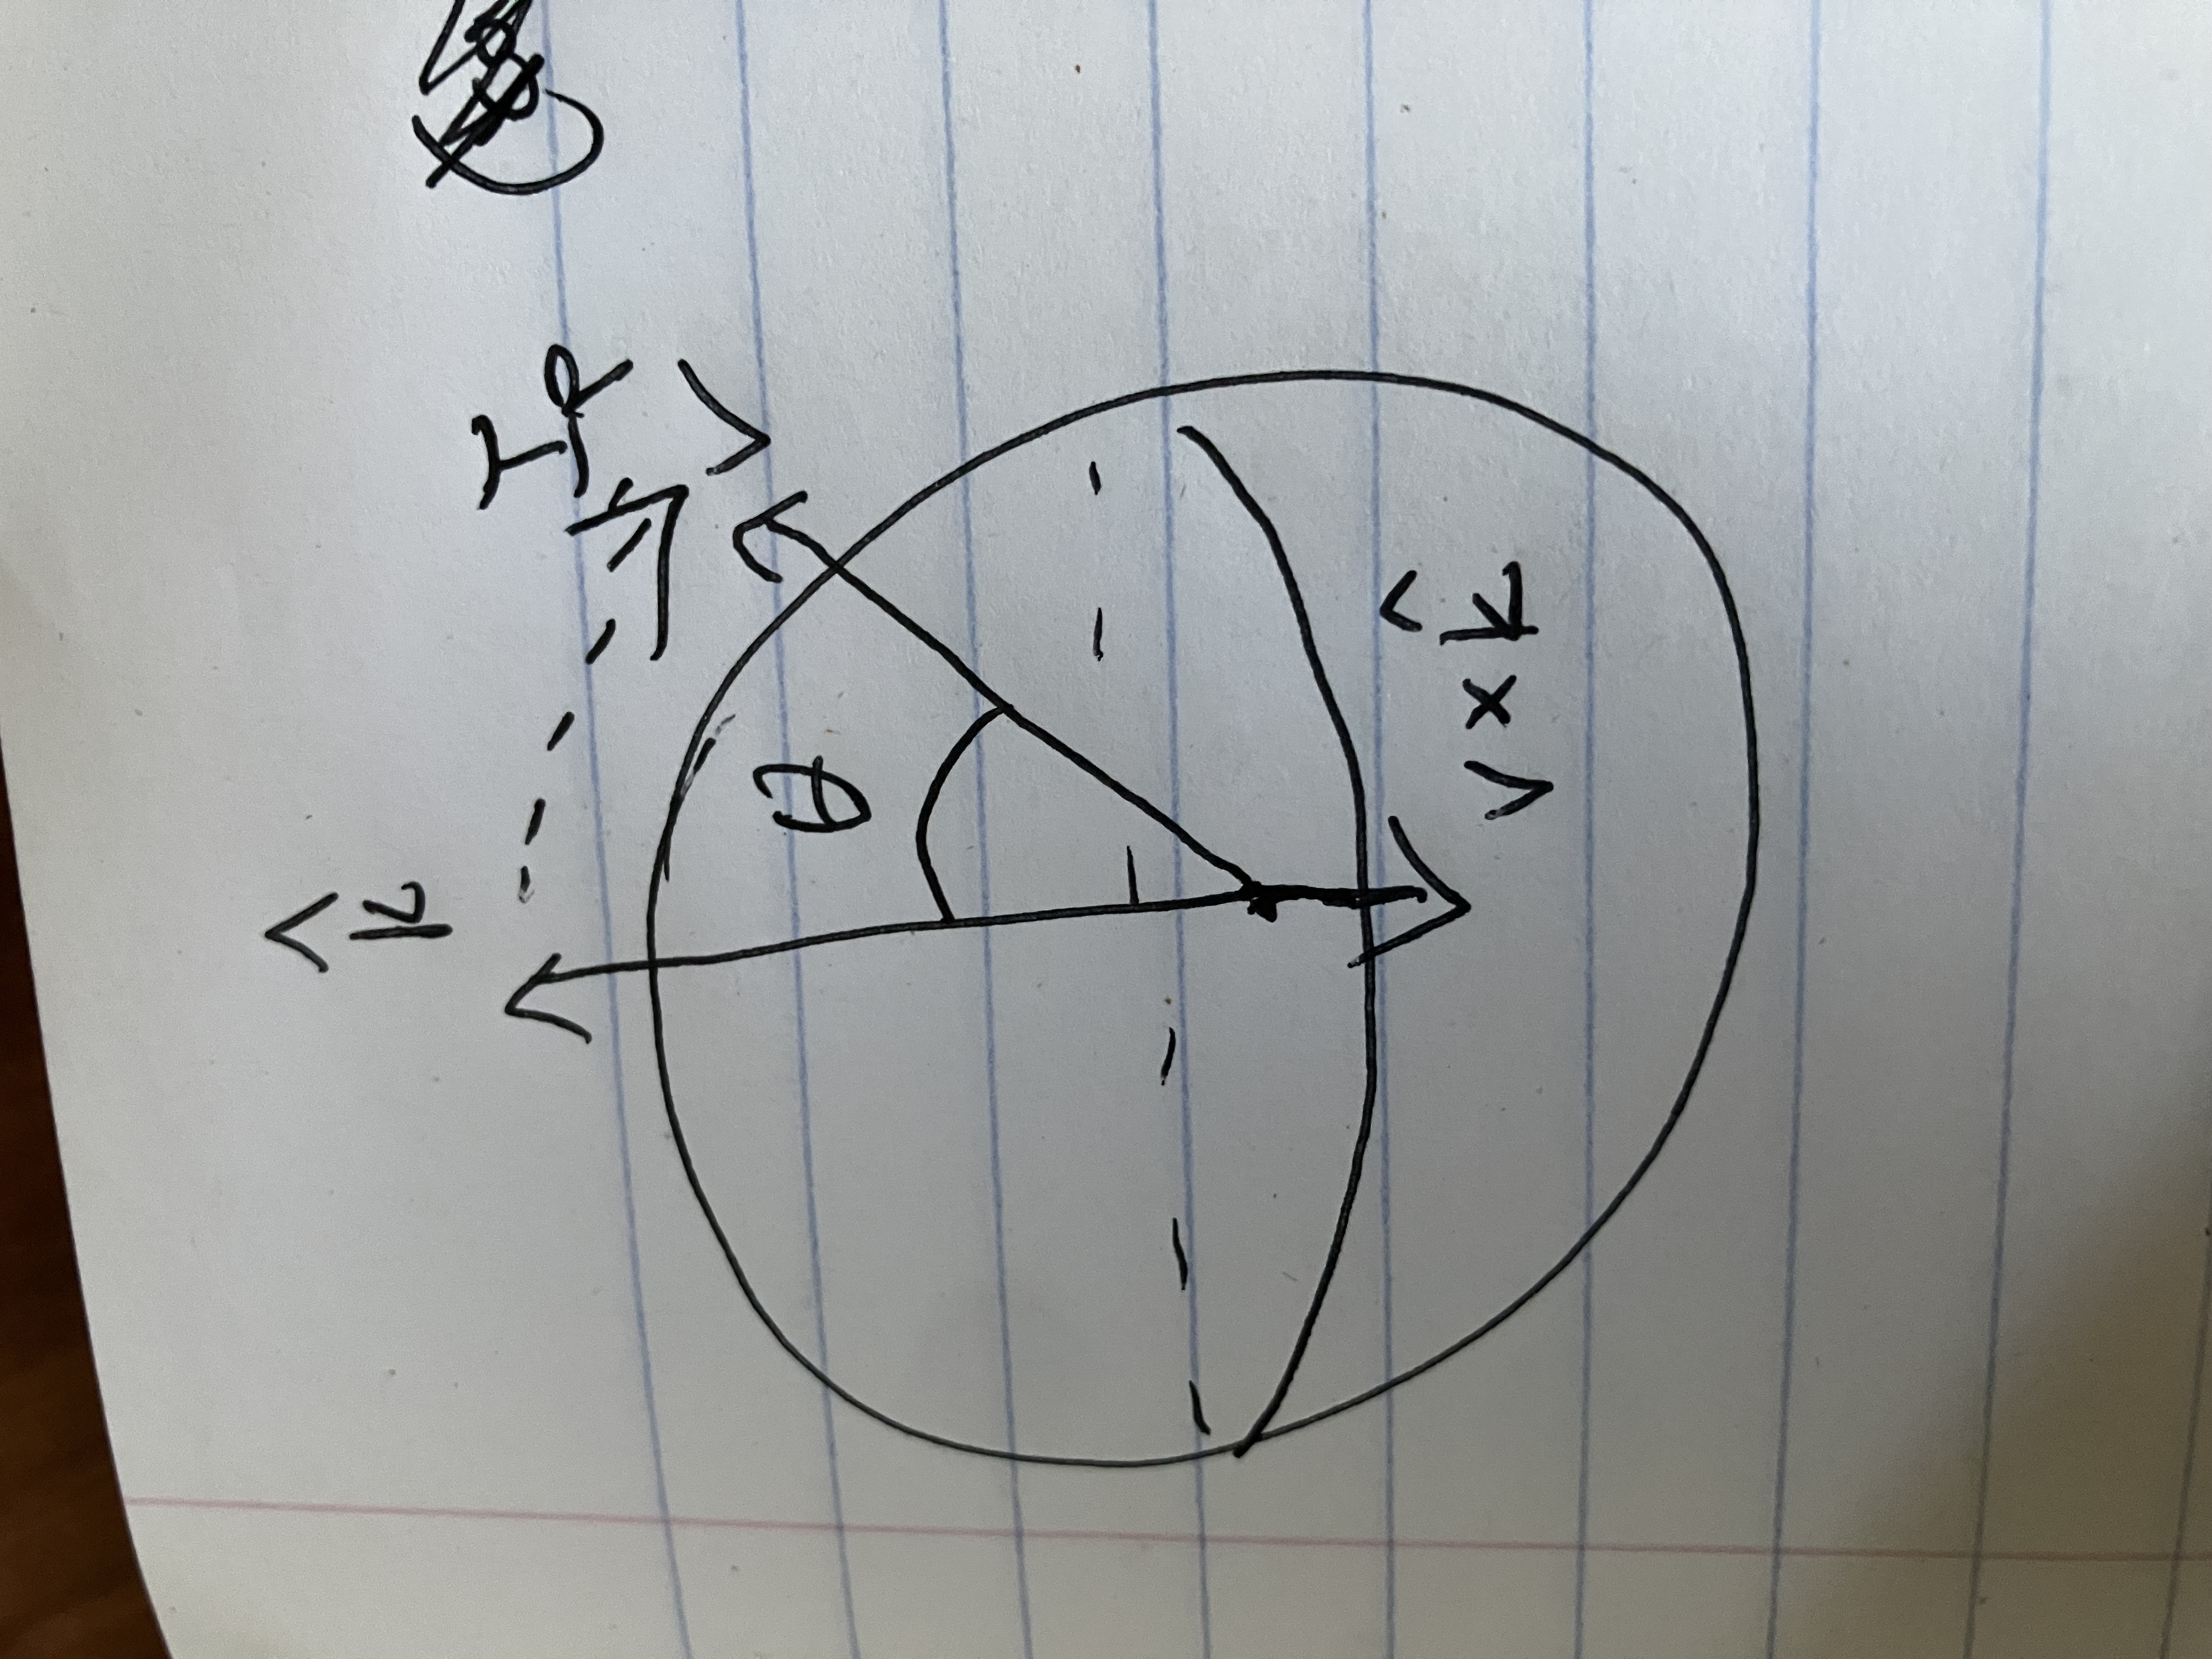 k̂
I_p
v
θ
v × k̂